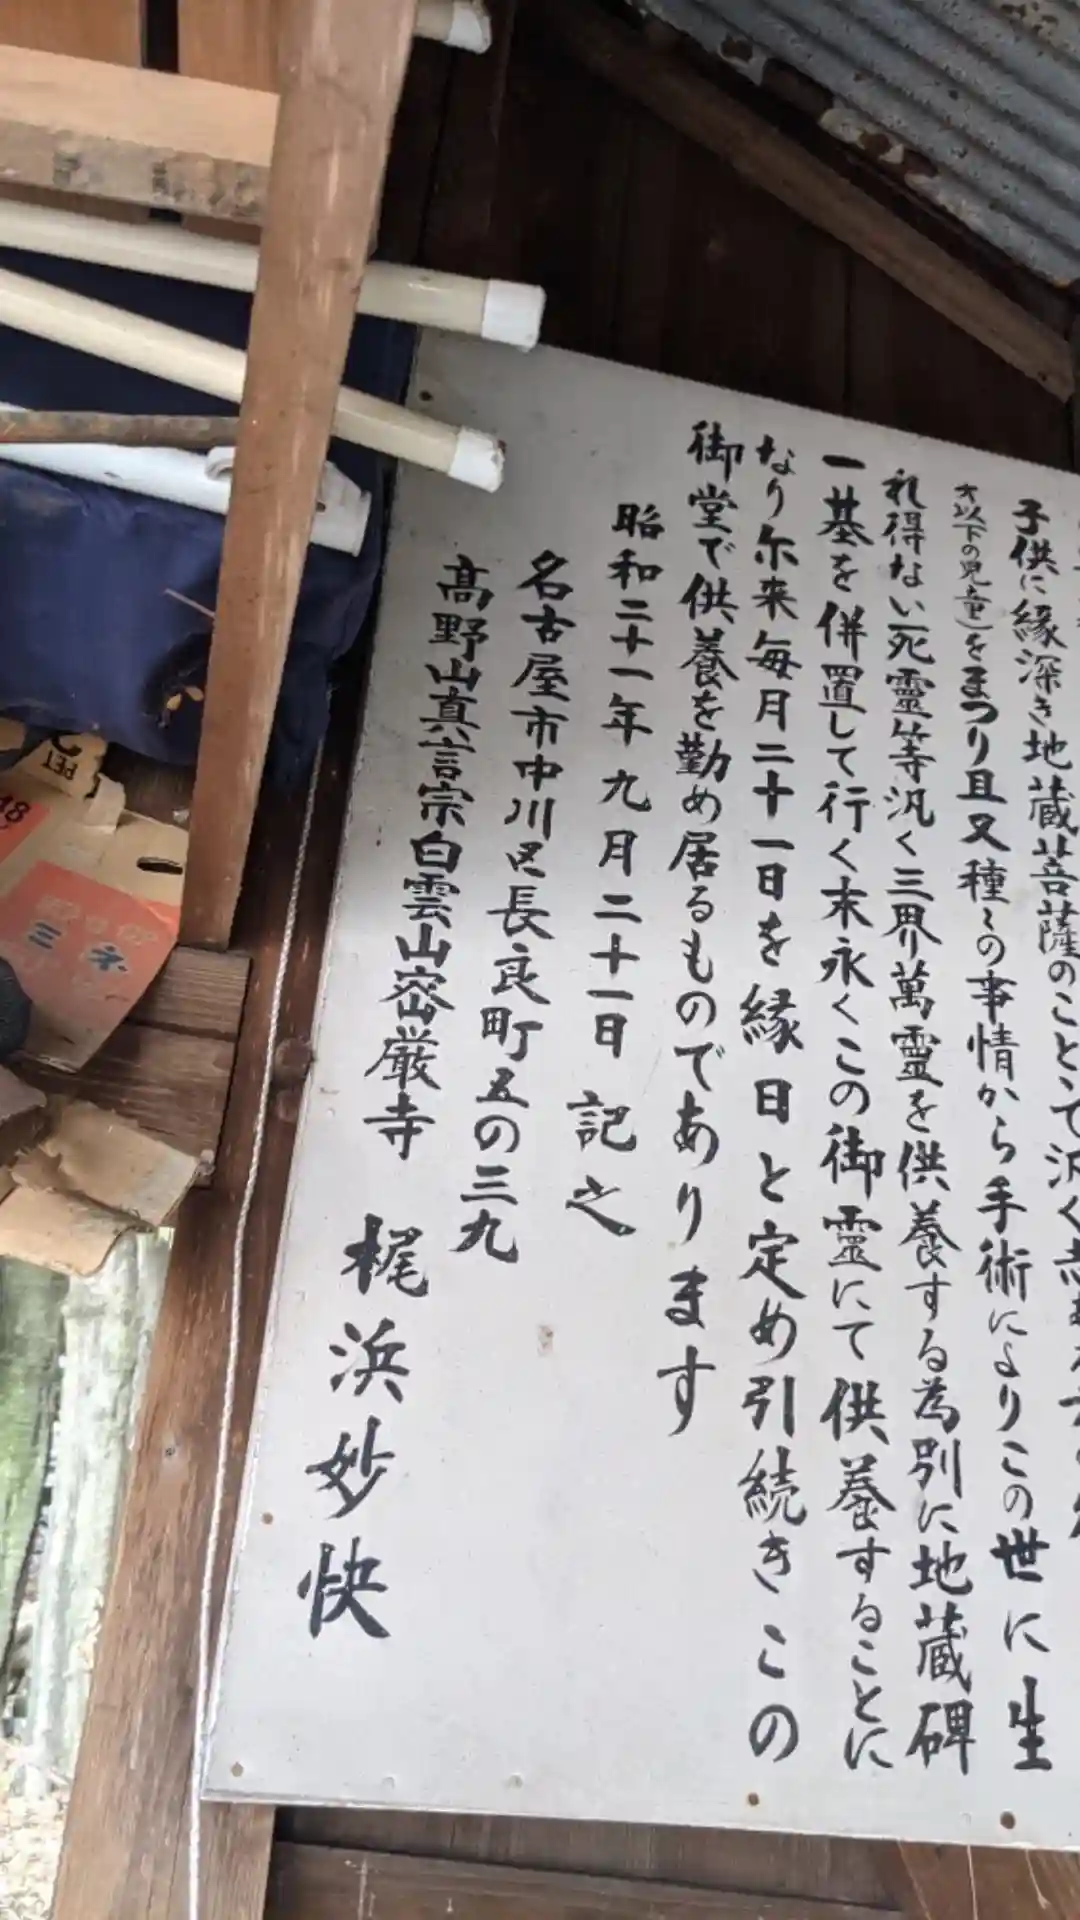 子供に縁深き地蔵菩薩のことして汎く
才以下の児童)をまつり且又種々の事情から手術によりこの世に生
れ得ない死霊等汎く三界萬霊を供養する為別に地蔵碑
一基を併置して行く末永くこの御霊にて供養することに
なり尓来毎月二十一日を縁日と定め引続きこの
御堂で供養を勤め居るものであります
昭和二十一年九月二十一日 記之
名古屋市中川区長良町五の三九
高野山真言宗白雲山密厳寺 梶浜妙快
PET
48
三ネ